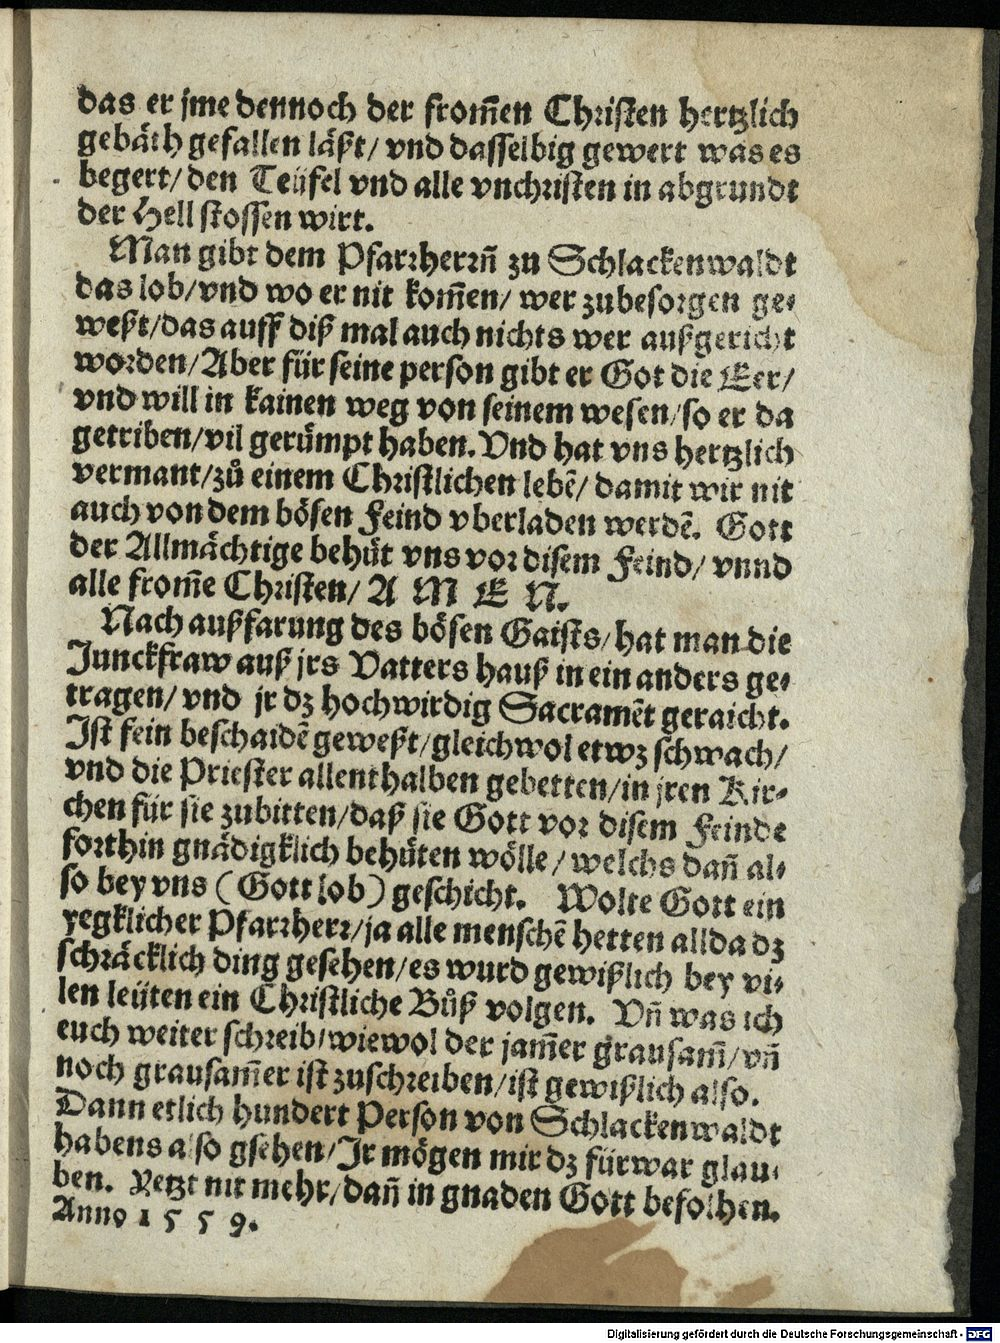 das er jme dennoch der from̃en Christen hertzlich
gebäth gefallen läßt/ vnd dasselbig gewert was es
begert/ den Teüfel vnd alle vnchristen in abgrundt
der Hell stossen wirt.
Man gibt dem Pfarrherrñ zu Schlackenwaldt
das lob/ vnd wo er nit kom̃en/ wer zubesorgen ge⸗
weßt/ das auff diß mal auch nichts wer außgericht
worden/ Aber für seine person gibt er Got die Eer/
vnd will in kainen weg von seinem wesen/ so er da
getriben/ vil gerümpt haben. Vnd hat vns hertzlich
vermant/ zů einem Christlichen lebẽ/ damit wir nit
auch von dem bösen Feind vberladen werdẽ. Gott
der Allmächtige behüt vns vor disem Feind/ vnnd
alle from̃e Christen/ A M E N.
Nach außfarung des bösen Gaists/ hat man die
Junckfraw auß jrs Vatters hauß in ein anders ge⸗
tragen/ vnd jr dz hochwirdig Sacramẽt geraicht.
Ist fein beschaidẽ geweßt/ gleichwol etwz schwach/
vnd die Priester allenthalben gebetten/ in jren Kir⸗
chen für sie zubitten/ daß sie Gott vor disem Feinde
forthin gnädigklich behüten wölle/ welchs dañ al⸗
so bey vns (Gott lob) geschicht. Wolte Gott ein
yegklicher Pfarrherr/ ja alle menschẽ hetten allda dz
schräcklich ding gesehen/ es wurd gewißlich bey vi⸗
len leüten ein Christliche Bůß volgen. Vñ was ich
euch weiter schreib/ wiewol der jam̃er grausam̃/ vñ
noch grausam̃er ist zuschreiben/ ist gewißlich also.
Dann etlich hundert Person von Schlackenwaldt
habens also gsehen/ Ir mögen mir dz fürwar glau⸗
ben. Yetzt nit mehr/ dañ in gnaden Gott befolhen.
Anno 1559.
Digitalisierung gefördert durch die Deutsche Forschungsgemeinschaft - DFG